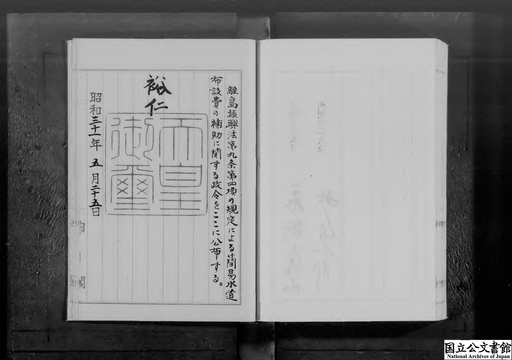 離島振興法第九条第四項の規定による簡易水道
布設費の補助に関する政令をここに公布する。
裕仁
天皇御璽
昭和三十一年五月二十五日
国立公文書館
National Archives of Japan